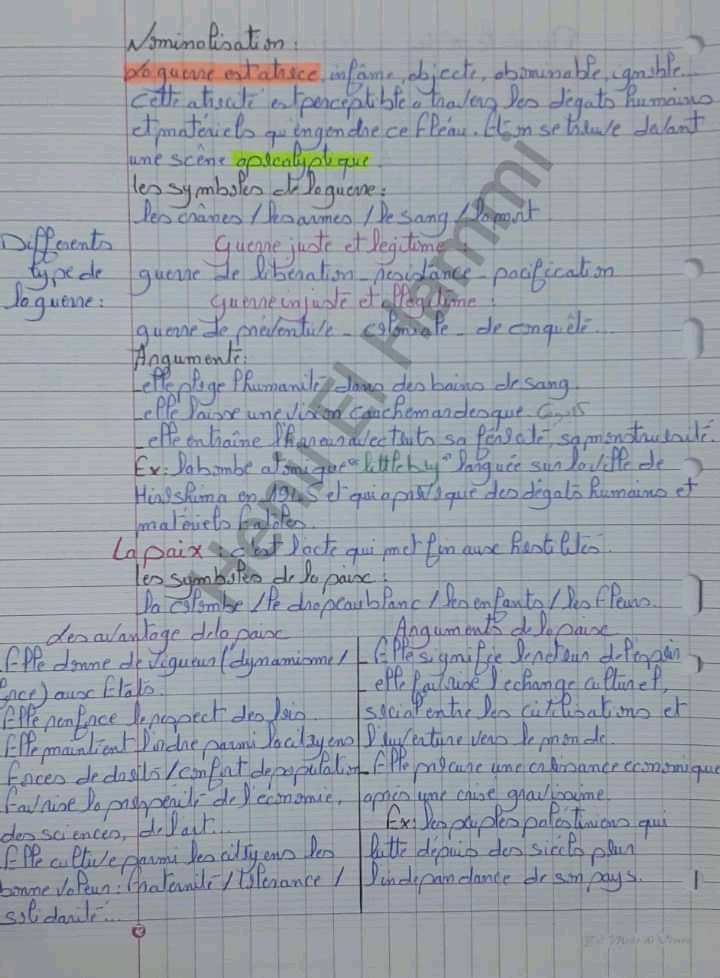 Nominalisation :
La guerre est atroce, infâme, abjecte, abominable, ignoble...
Cette atrocité est perceptible à travers les dégats humains
et matériels qu'engendre ce fléau. Et on se trouve devant
une scène apocalyptique.
les symboles de la guerre :
les crânes / les armes / le sang / la mort
Differents type de la guerre :
Guerre juste et legitime :
guerre de libération - resistance - pacification
Guerre injuste et illégitime :
guerre de préventive - coloniale - de conquête...
Arguments :
- elle plege l'humanité dans des bains de sang.
- elle laisse une vision cauchemardesque
- elle entraîne l'horreur avec toute sa férocité, sa monstruosité.
Ex : la bombe atomique "little boy" larguée sur la ville de
Hiroshima en 1945 et qui a provoqué des dégats humains et
matériels fatales.
La paix : c'est l'acte qui met fin aux hostilités.
les symboles de la paix :
la colombe / le drapeau blanc / les enfants / les fleurs.
des avantage de la paix
Elle donne de vigueur (dynamisme /
force) aux États.
Elle renforce le respect des lois.
Elle maintient l'ordre parmi la citoyens
Forces de docilité / confort de population
Favorise la prospérité de l'économie,
des sciences, de l'art...
Elle cultive parmi les citoyens les
bonne valeur : fraternité / tolerance /
solidarité...
Arguments de la paix
Elle signifie
elle favorise l'echange culturel,
social entre les civilisations et
l'ouverture vers le monde.
Elle procure une croissance economique
après une crise gravissime.
Ex : les peuples palestiniens qui
lutte depuis des siècles pour
l'independance de son pays.
Henir El Hammi